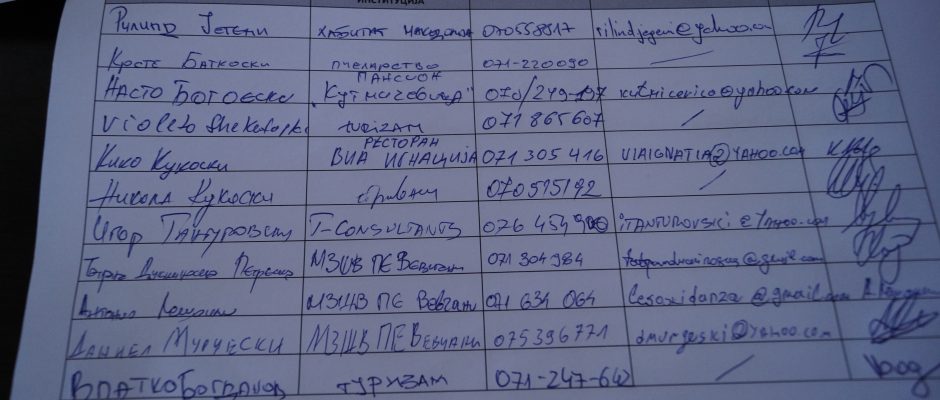 ИНСТИТУЦИЈА
РИЛИНД ЈЕГЕНИ ХАБИТАТ МАКЕДОНИЈА 070558817 rilindjegeni@yahoo.com
Крсте БАТКОСКИ ПЧЕЛАРСТВО 071-220090 —
НАСТО БОГОЕСКИ ПАНСИОН "КУТМИЧЕВИЦА" 070/249-197 kutmicevica@yahoo.com
Violeta turizam 071 865607 /
Кико Кукоски РЕСТОРАН ВИА ИГНАЦИЈА 071 305 416 VIAIGNATIA@YAHOO.COM
Никола Кукоски приватен 070515192 /
Игор ТАНТУРОВСКИ T-CONSULTANTS 076 454 900 ITANTUROVSKI@YAHOO.COM
МЗШВ ПЕ Вевчани 071 304 984
МЗШВ ПЕ Вевчани 071 634 064 @gmail.com
ДАНИЕЛ МУРГЕСКИ МЗШВ ПЕ ВЕВЧАНИ 075396771 dmurgeski@yahoo.com
ВЛАТКО БОГДАНОВ ТУРИЗАМ 071-247-642 /